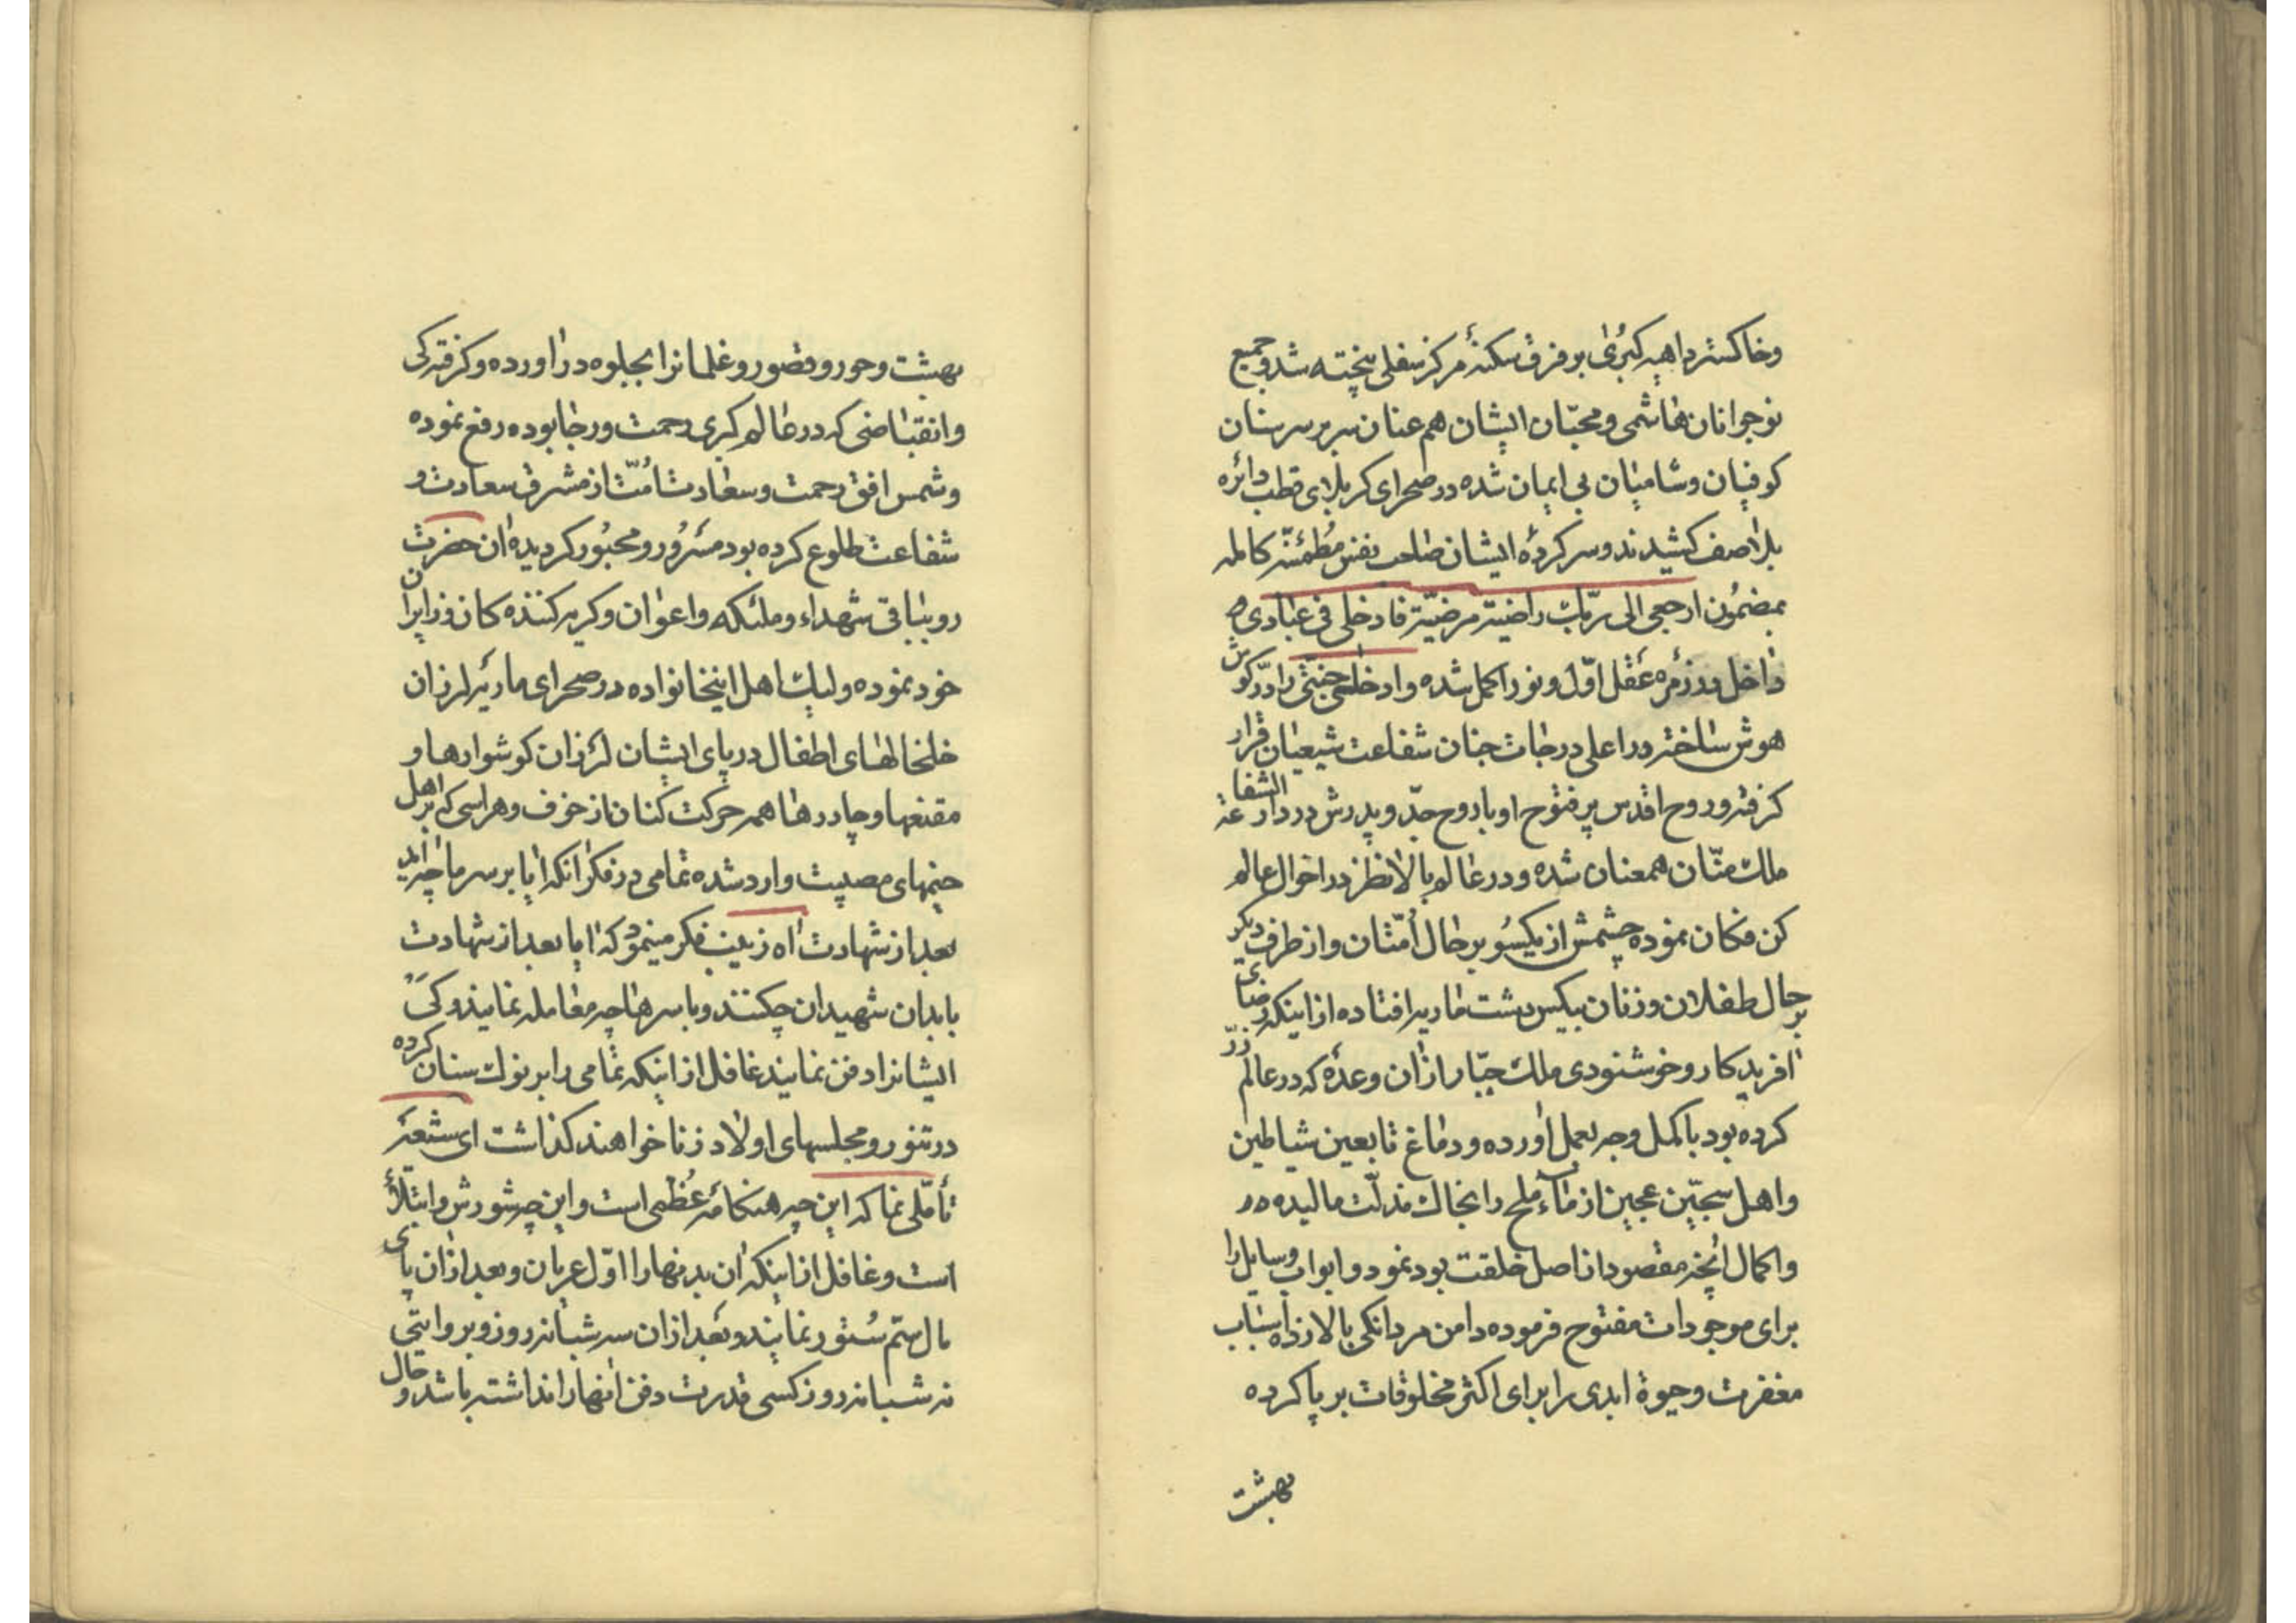 وخاکستر داهیه کبریٰ بر فرق سکنهٔ مرکز سفلی پخته شد وجمیع
نوجوانان هاشمی ومحبّان ایشان هم عنان سر بر سر سنان
کوفیان وشامیان بی ایمان شده در صحرای کربلای قطب دائره
بلا صف کشیدند وسرکردهٔ ایشان صاحب نفس مُطمئنّه کامله
بمضمُون ارجعی الی ربّک راضیة مرضیّة فادخلی فی عبادی
داخل در زمرهٔ عقل اوّل ونور اکمل شده وادخلی جنّتی را در گوش
هوش ساخته در اعلی درجات جنان شفاعت شیعیان قرار
گرفته وروح اقدس پر فتوح او با روح جدّ وپدرش در دار الشفاعة
ملک منّان همعنان شده ودر عالم بالا نظر در احوال عالم
کن فکان نموده چشمش از یکسُو بر حال اُمّتان واز طرف دیگر
بر حال طفلان وزنان بیکس دشت ماریه افتاده از اینکه رضای
افریدکار وخوشنودی ملک جبّار از ان وعدهٔ که در عالم ذرّ
کرده بود باکمل وجه بعمل اورده ودماغ تابعین شیاطین
واهل سجّین عجین از ماء ملح را بخاک مذلّت مالیده
واکمال انچه مقصود از اصل خلقت بود نمود وابواب وسایل را
برای موجودات مفتوح فرموده دامن مردانگی بالا زده اسباب
مغفرت وحیوة ابدی را برای اکثر مخلوقات بر پا کرده
بهشت
بهشت وحور وقصور وغلمانرا بجلوه در اورده وگرفتگی
وانقباضی که در عالم کبری رحمت ورجا بوده رفع نموده
وشمس افق رحمت وسعادت امّت از مشرق سعادت و
شفاعت طلوع کرده بود مسرُور ومحبُور کردیده ان حضرت
رو بباقی شهداء وملئکه واعوان وکریه کننده کان
خود نموده ولیک اهل اینخانواده در صحرای ماریه لرزان
خلخالهای اطفال در پای ایشان لرزان کوشوارها و
مقنعها وچادرها همه حرکت کنان از خوف وهراسی که بر اهل
خیمهای مصیبت وارد شده تمامی در فکر انکه ایا بر سر ما چه اید
بعد از شهادت اه زینب فکر مینمود که ایا بعد از شهادت
بابدان شهیدان چکنند وبا سرها چه معامله نمایند وکی
ایشانرا دفن نمایند غافل از اینکه تمامی را بر نوک سنان کرده
در تنور ومجلسهای اولاد زنا خواهند کذاشت ای شیعه
تأمّلی نما که این چه هنکامهٔ عُظمی است واین چه شورش وابتلاء
است وغافل از اینکه ان بدنهارا اوّل عریان وبعد از ان پای
مال سمّ سُتور نمایند وبعد از ان سه شبانه روز وبروایتی
نه شبانه روز کسی قدرت دفن انهارا نداشته باشد وحال